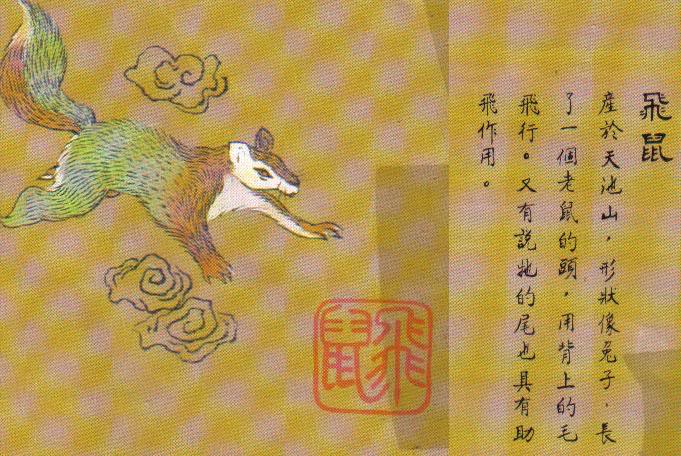 飛鼠
產於天池山，形狀像兔子．長
了一個老鼠的頭，用背上的毛
飛行。又有說牠的尾也具有助
飛作用。
飛鼠